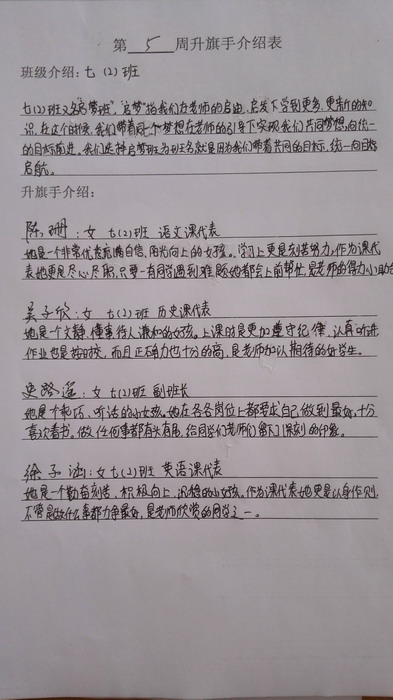 第 5 周升旗手介绍表
班级介绍:七(2)班
七(2)班又名"启梦班","启梦"指我们在老师的启迪、启发下学到更多、更新的知
识,在这个时候,我们带着同一个梦想在老师的引导下实现我们共同梦想,向统一
的目标前进。我们选择启梦班为班名就是因为我们带着共同的目标,统一向目标
启航。
升旗手介绍:
陈珊:女 七(2)班 语文课代表
她是一个非常优秀充满自信,阳光向上的女孩。学习上更是刻苦努力,作为课代
表她更是尽心尽职,只要一有同学遇到难题她都会上前帮忙,是老师的得力小助
吴子欣:女 七(2)班 历史课代表
她是一个文静,懂事待人谦和的女孩。上课时是更加遵守纪律,认真听讲
作业也是按时交,而且正确率也十分的高,是老师加以期待的好学生。
史路遥:女 七(2)班 副班长
她是个乖巧、听话的小女孩。她在各各岗位上都要求自己做到最好,十分
喜欢看书。做任何事都有头有尾,给同学们老师们留下深刻的印象。
徐子涵:女七(2)班 英语课代表
她是一个勤奋刻苦,积极向上,沉稳的小女孩。作为课代表她更是以身作则,
不管是做什么事都力争最好,是老师欣赏的同学之一。